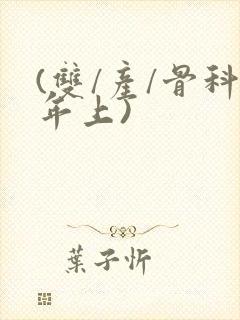 (雙/産/骨科
年上)
葉子忻